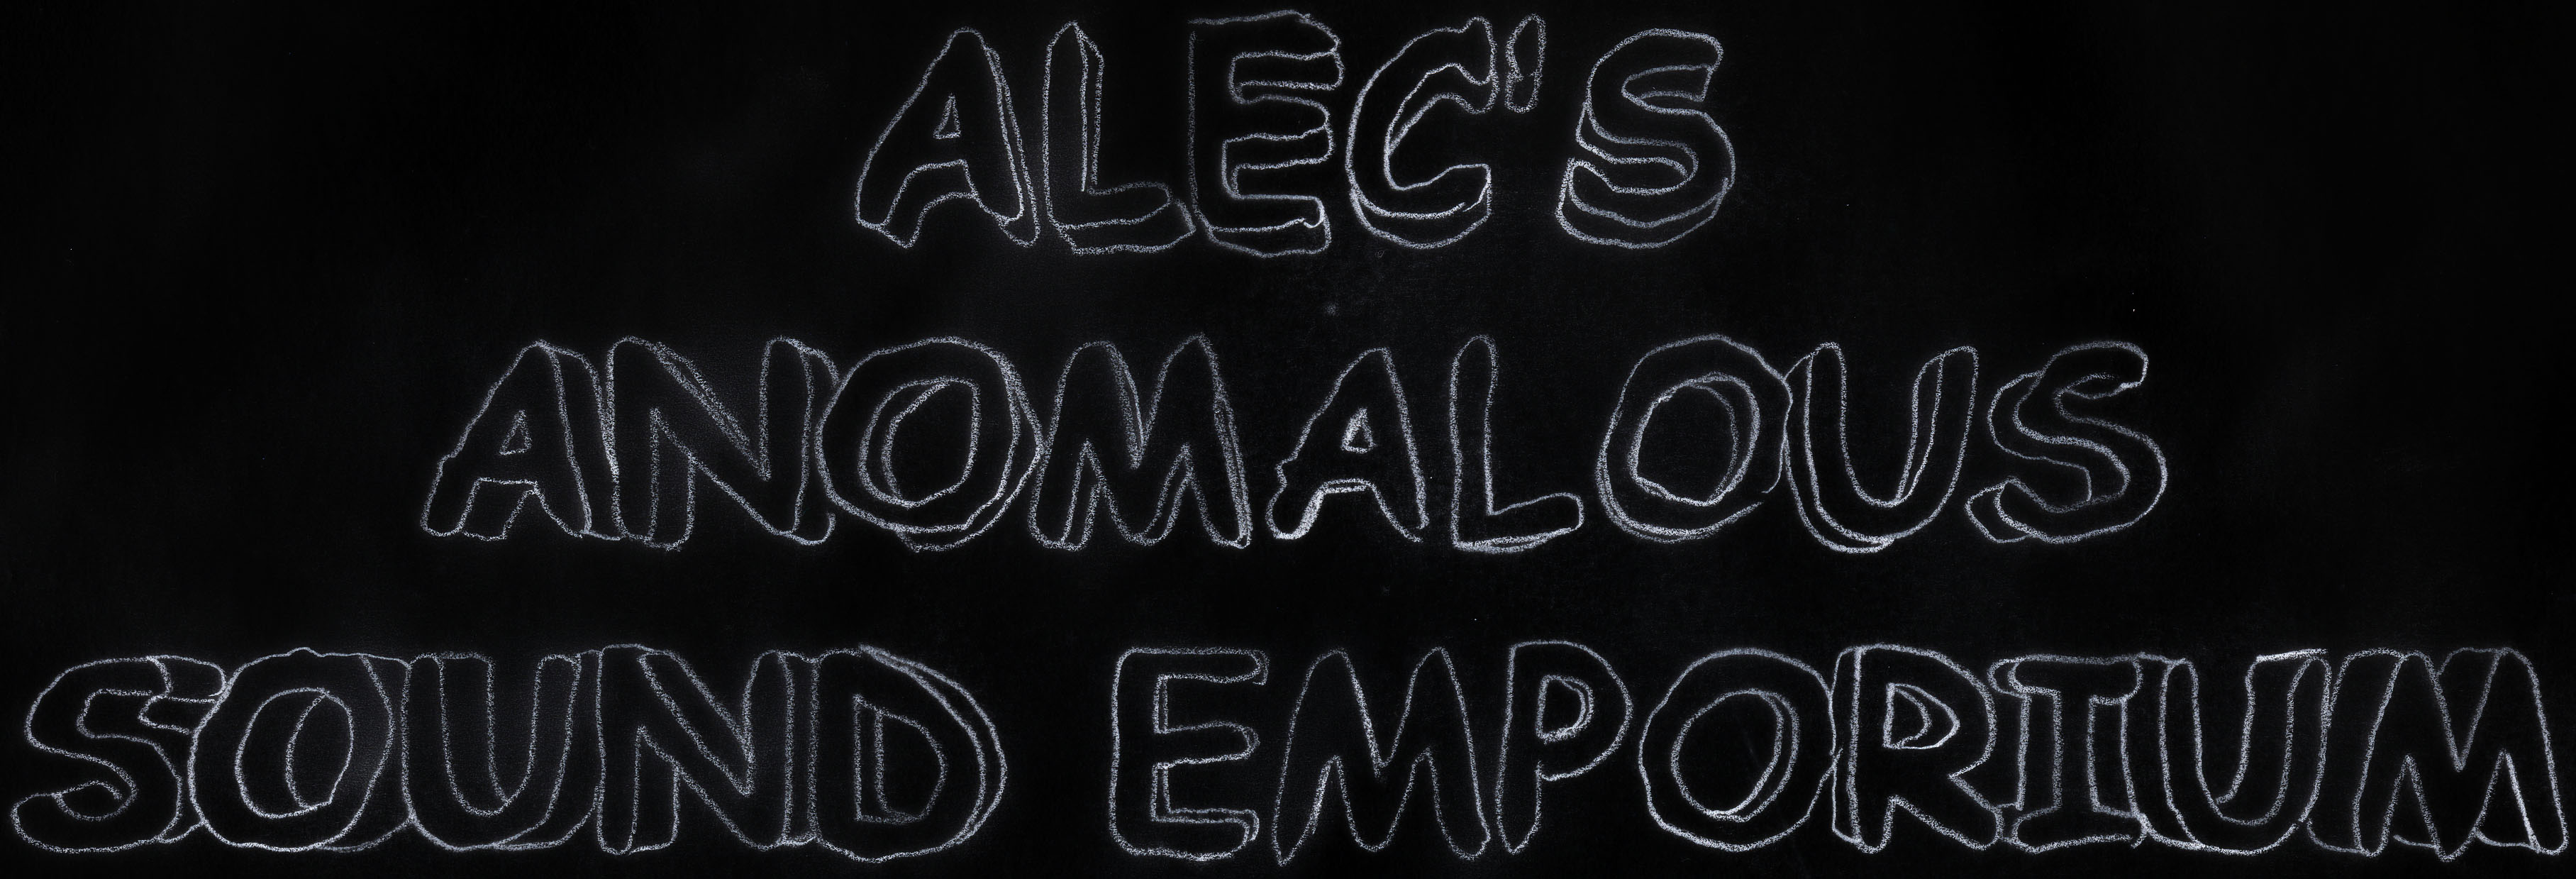 ALEC'S
ANOMALOUS
SOUND EMPORIUM